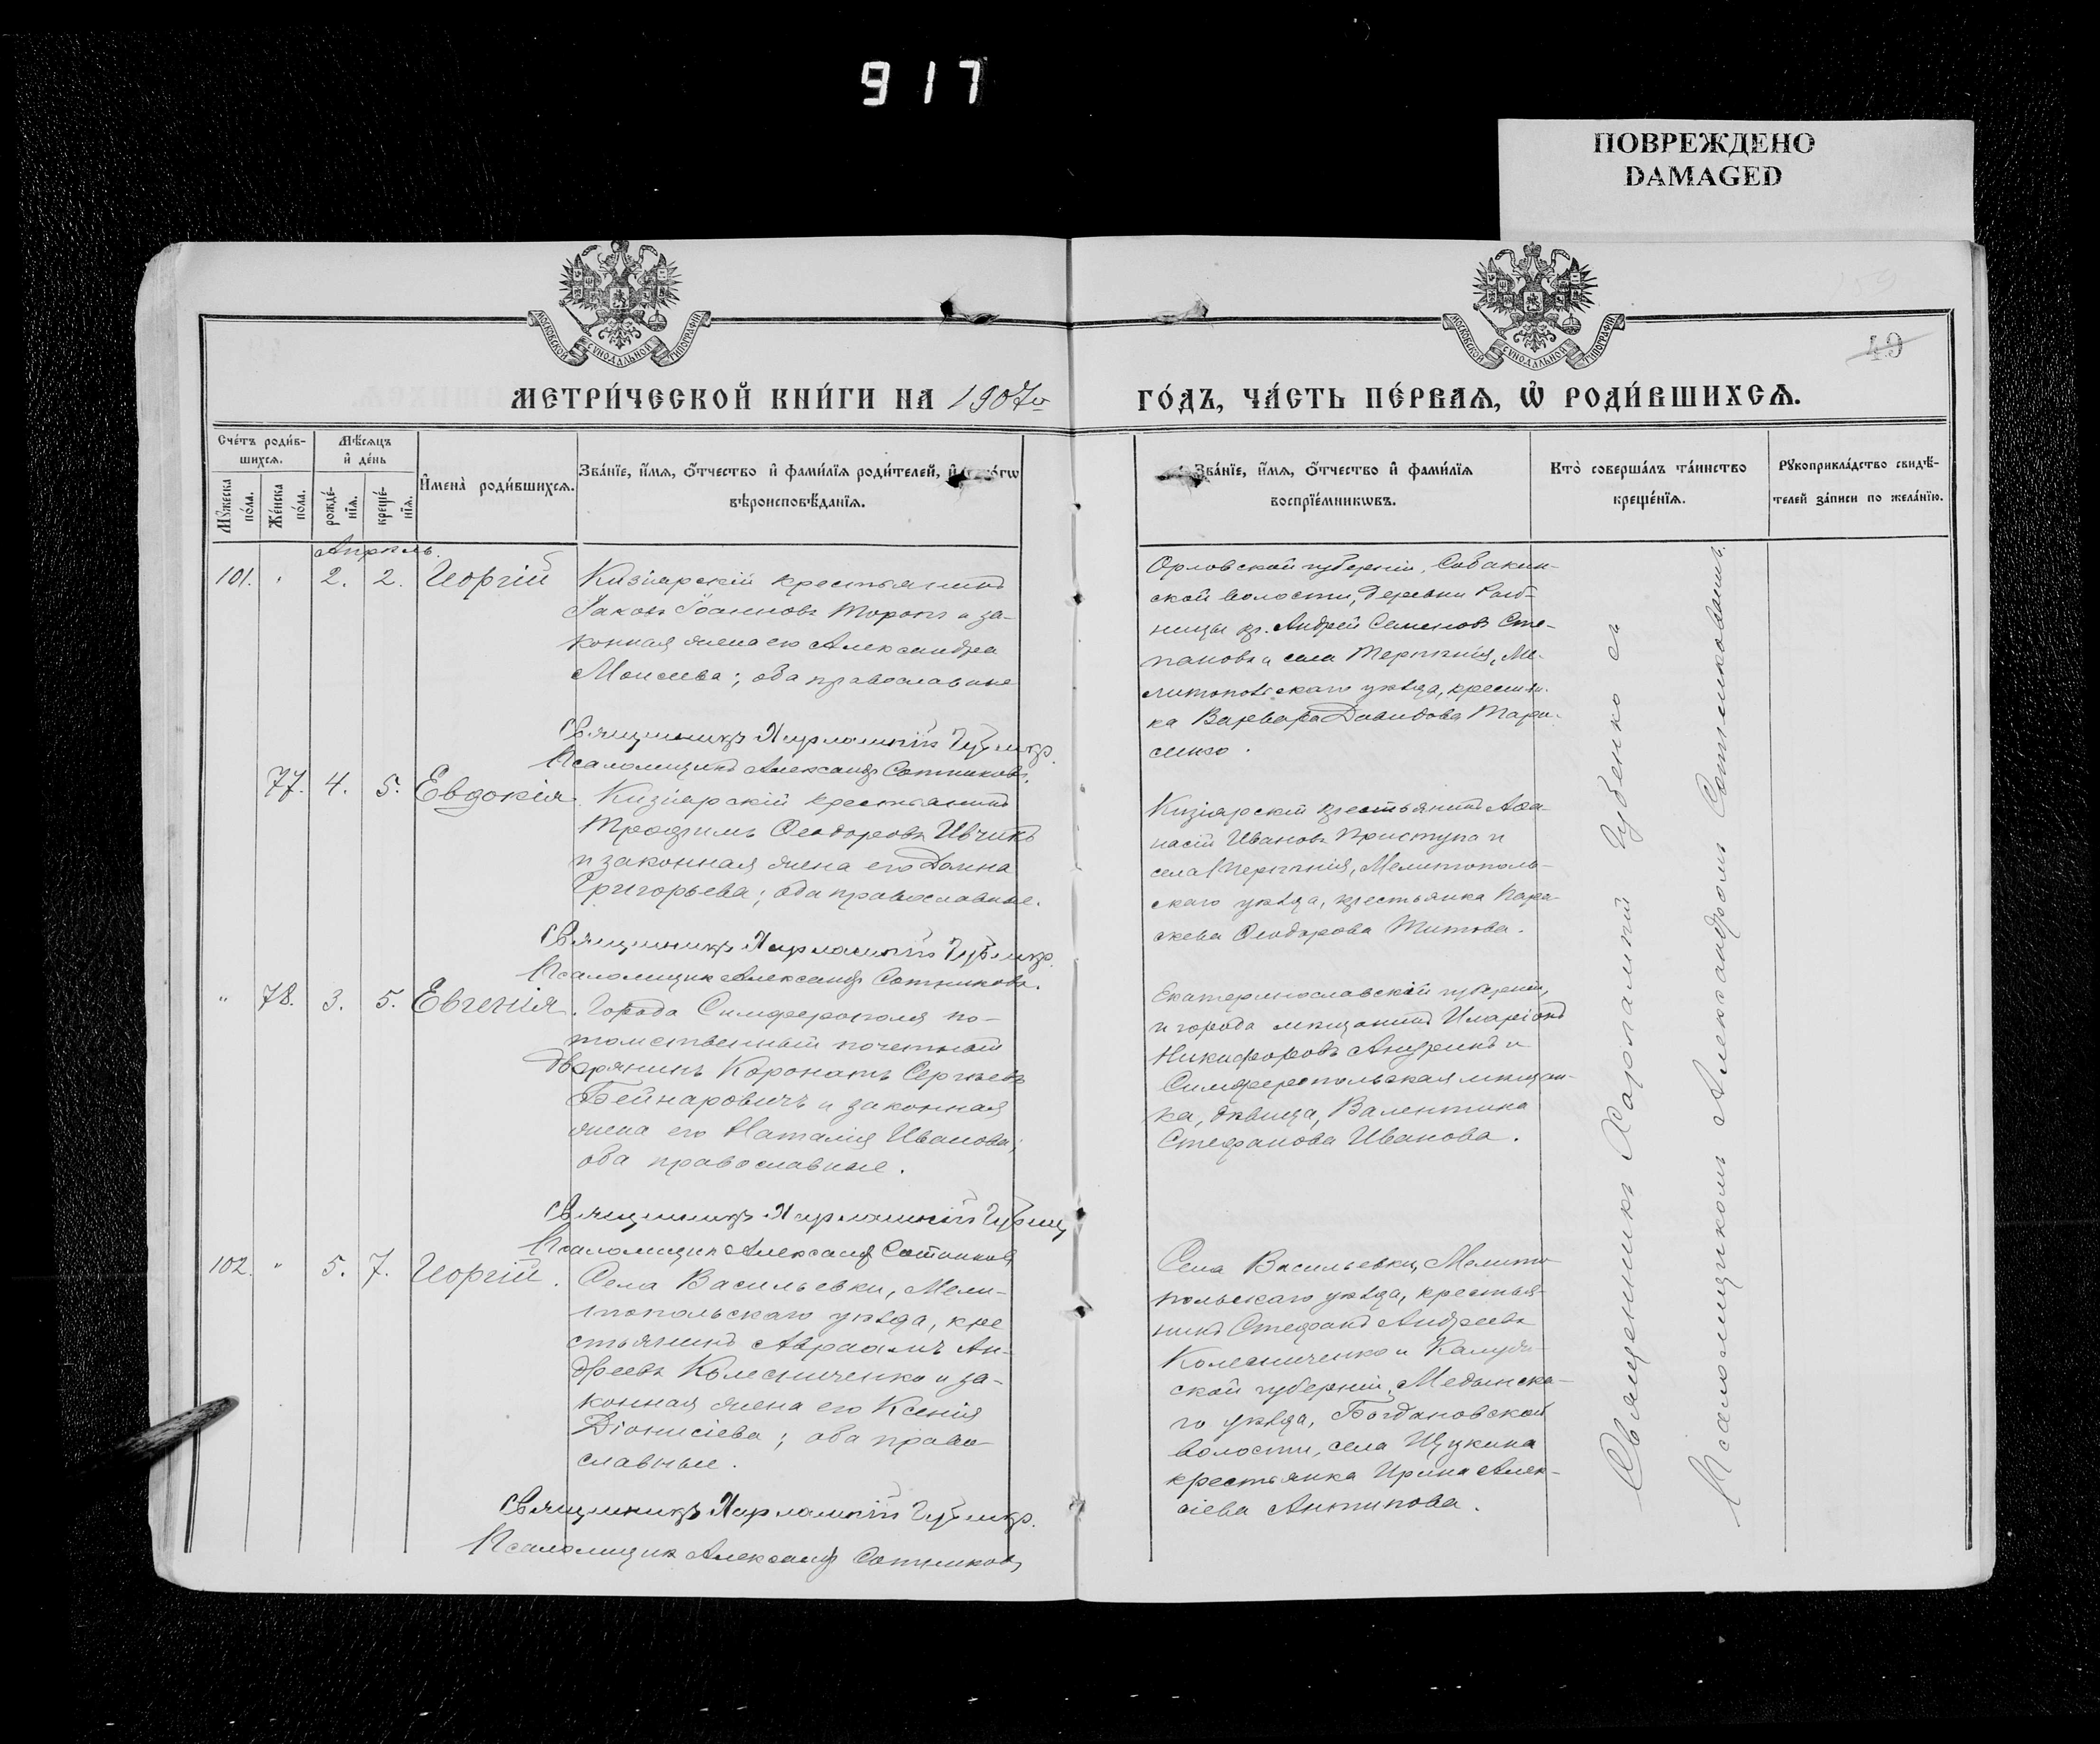 917
ПОВРЕЖДЕНО
DAMAGED
МОСКОВСКОЙ СѴНОДАЛЬНОЙ ТИПОГРАФІИ
МОСКОВСКОЙ СѴНОДАЛЬНОЙ ТИПОГРАФІИ
49
МЕТРИ́ЧЕСКОЙ КНИ́ГИ НА 1907й
ГО́ДЪ, ЧА́СТЬ ПЕ́РВАѦ, Ѡ҆ РОДИ́ВШИХСѦ.
Сче́тъ роди́в-
шихсѧ.
Мꙋжеска по́ла.
Же́нска по́ла.
Мѣ́сѧцъ
и҆ де́нь
рожде́-нїѧ.
креще́-нїѧ.
И҆мена̀ роди́вшихсѧ.
Зва́нїе, и҆́мѧ, о҆́тчество и҆ фами́лїѧ роди́телей, и҆
вѣроисповѣ́данїѧ.
Зва́нїе, и҆́мѧ, о҆́тчество и҆ фами́лїѧ
воспрїе́мникѡвъ.
Кто̀ соверша́лъ та́инство
креще́нїѧ.
Рꙋкоприкла́дство свидѣ́-
телей за́писи по жела́нїю.
Апрѣль.
101. " 2. 2. Георгій
Кизіярскій крестьянинъ
Іаковъ Іоанновъ Торопъ и за-
конная жена его Александра
Моисеева; оба православные
Священникъ Харлампій Губенко.
Псаломщикъ Александръ Сотниковъ.
Орловской губерніи, Собакин-
ской волости, деревни
ницы кр. Андрей Семеновъ Сте-
пановъ и села Терпѣнія, Ме-
литопольскаго уѣзда, крестьян-
ка Варвара Давидова Тара-
сенко.
77. 4. 5. Евдокія.
Кизіярскій крестьянинъ
Трофимъ Ѳеодоровъ Ивчикъ
и законная жена его Домна
Григорьева; оба православные.
Священникъ Харлампій Губенко.
Псаломщикъ Александръ Сотниковъ.
Кизіярскій крестьянинъ Аѳа-
насій Ивановъ Приступа и
села Терпѣнія, Мелитополь-
скаго уѣзда, крестьянка Пара-
скева Ѳеодорова Титова.
" 78. 3. 5. Евгенія.
Города Симферополя по-
томственный почетный
дворянинъ Коронатъ Сергѣевъ
Бейнаровичъ и законная
жена его Наталія Иванова;
оба православные.
Священникъ Харлампій Губенко
Псаломщикъ Александръ Сотниковъ
Екатеринославской губерніи,
и города мѣщанинъ Иларіонъ
Никифоровъ и
Симферопольская мѣщан-
ка, дѣвица, Валентина
Стефанова Иванова.
102. " 5. 7. Георгій.
Села Васильевки, Мели-
топольскаго уѣзда, кре
стьянинъ Авраамъ Ан-
дреевъ Колесниченко и за-
конная жена его Ксенія
Діонисіева; оба право-
славные.
Священникъ Харлампій Губенко.
Псаломщикъ Александръ Сотниковъ
Села Васильевки, Мелито-
польскаго уѣзда, крестья-
нинъ Стефанъ Андреевъ
Колесниченко и Калуж-
ской губерніи, Медынска-
го уѣзда, Богдановской
волости, села Щукина
крестьянка Ирина Алек-
сіева Антипова.
Священникъ Харлампій Губенко съ
Псаломщикомъ Александромъ Сотниковымъ.